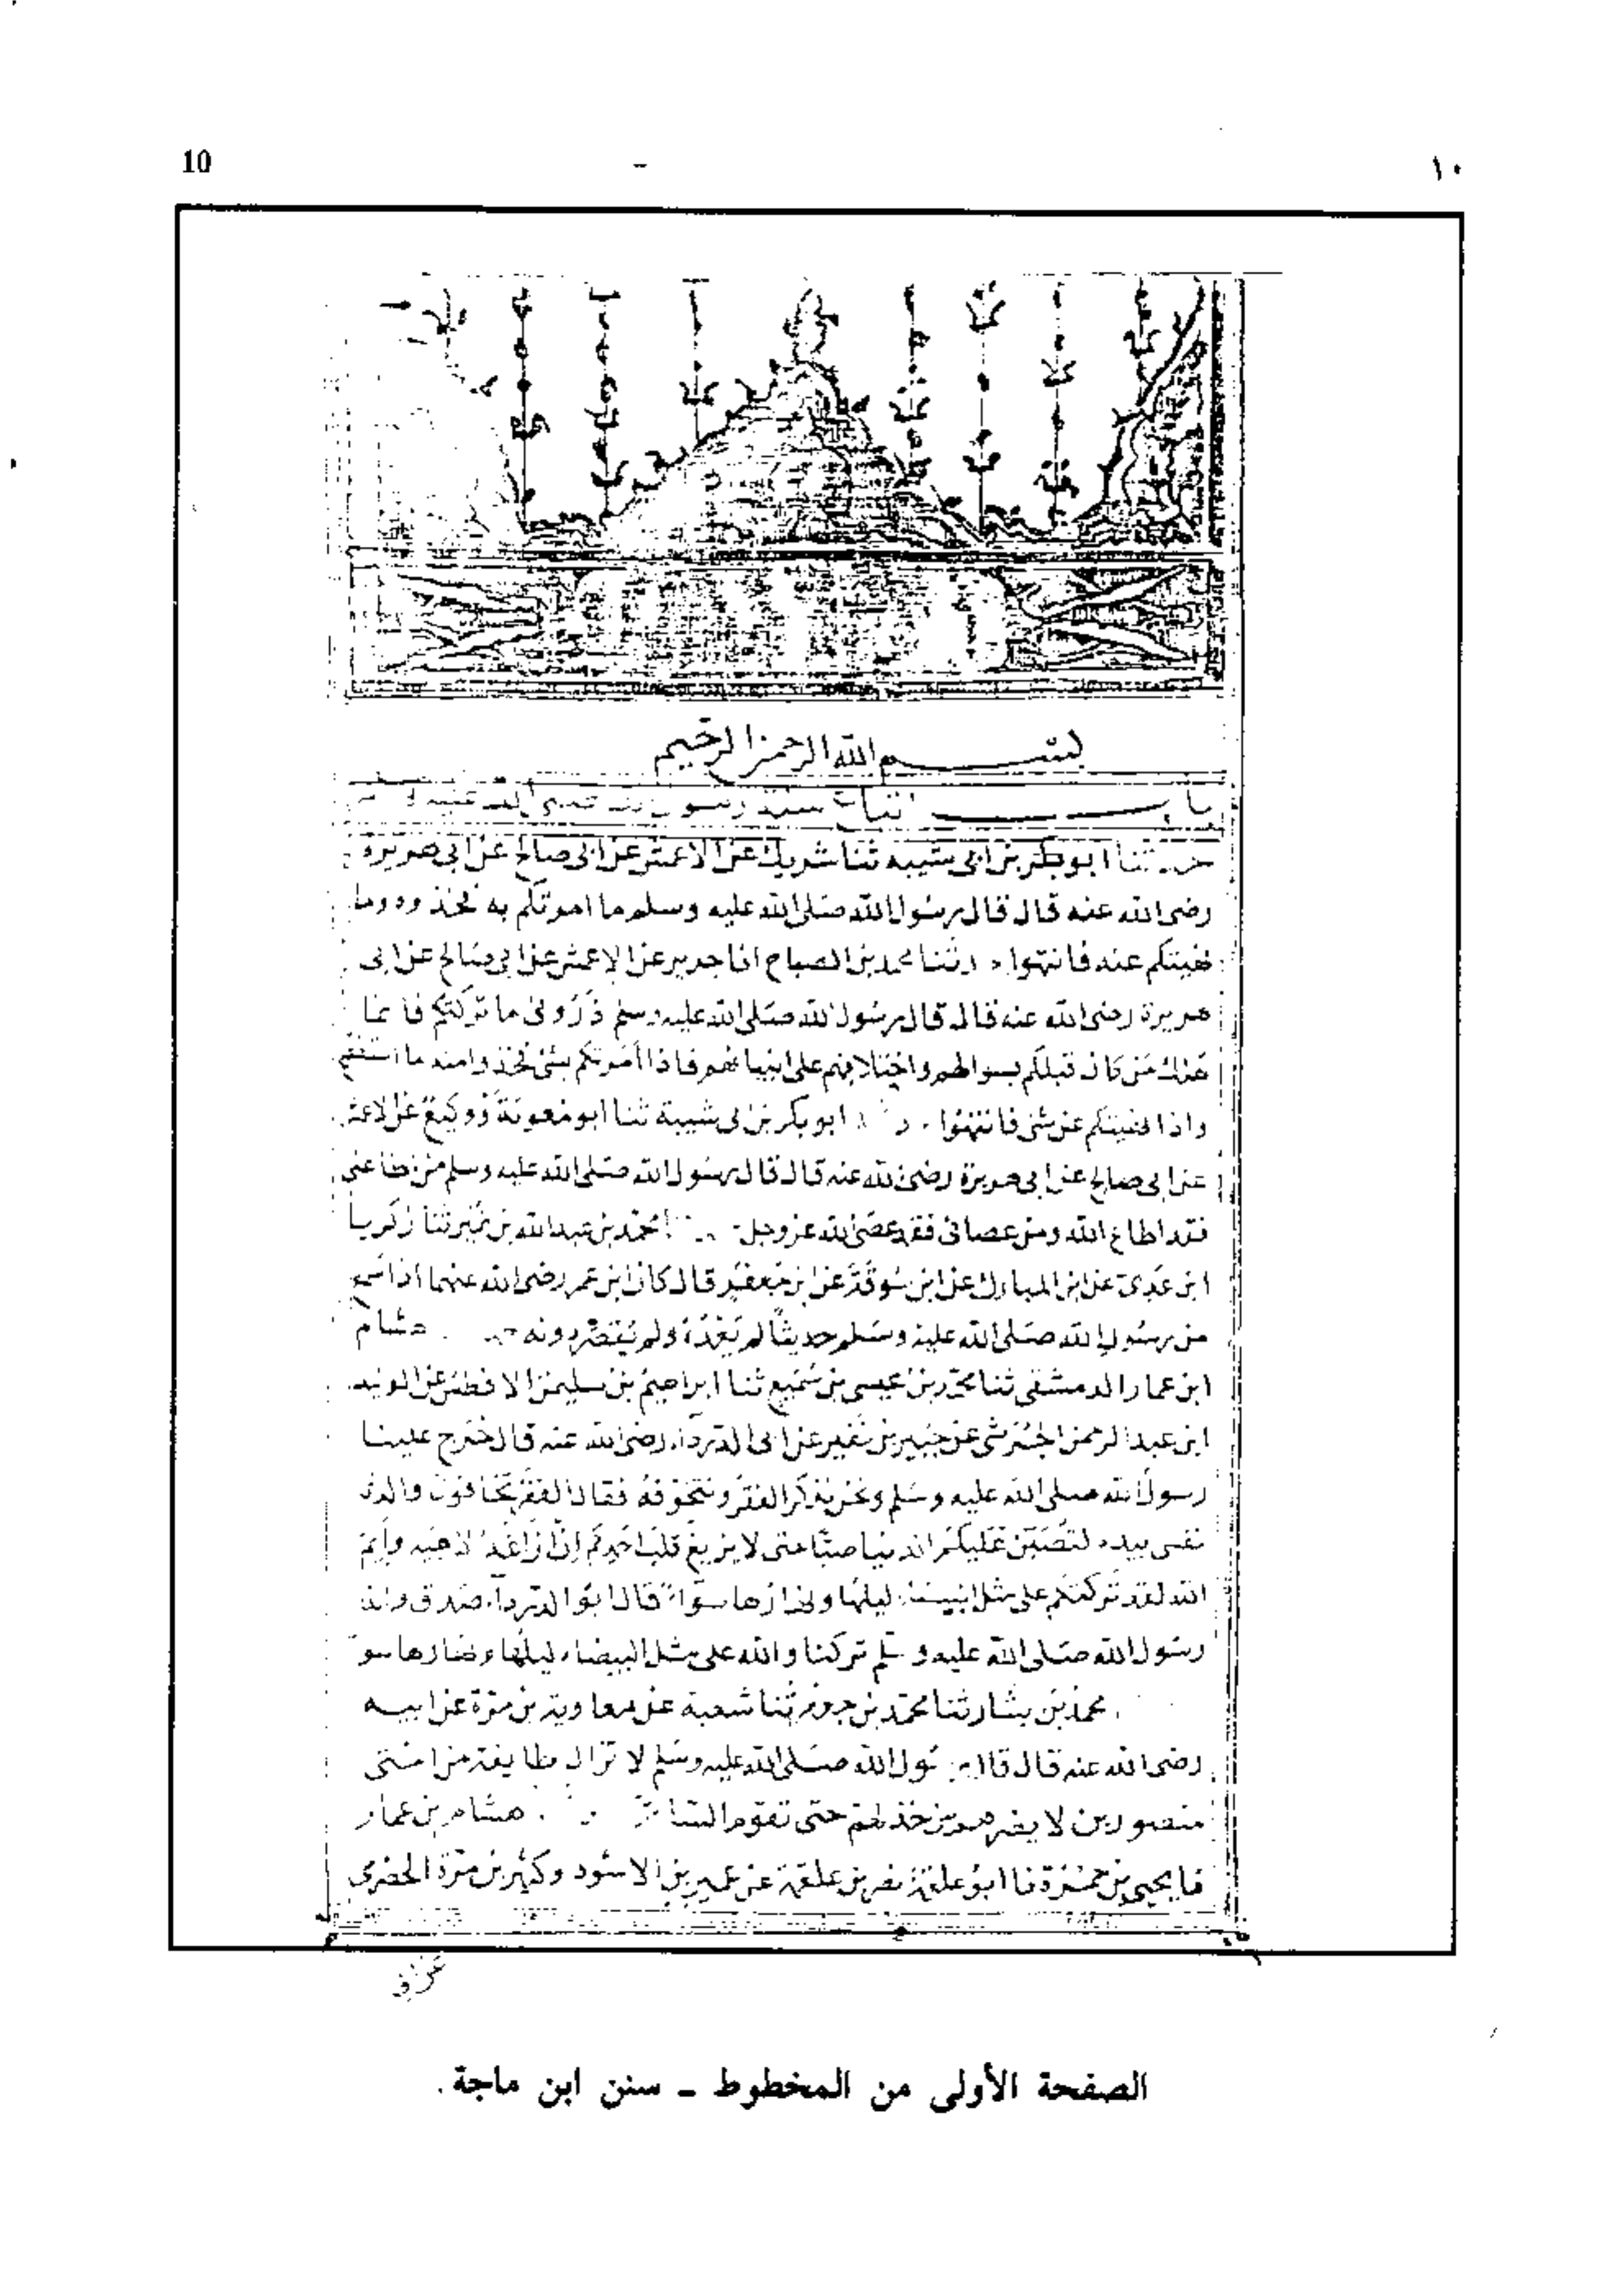 10
١٠
بسم الله الرحمن الرحيم
باب اتباع سنة رسول الله صلى الله عليه و
حدثنا ابو بكر بن ابى شيبه ثنا شريك عن الاعمش عن ابى صالح عن ابى هريرة
رضى الله عنه قال قال رسول الله صلى الله عليه وسلم ما امرتكم به فخذوه وما
نهيتكم عنه فانتهوا محمد بن الصباح انا جرير عن الاعمش عن ابى صالح عن ابى
هريرة رضى الله عنه قال قال رسول الله صلى الله عليه وسلم ذَرُونى ما تركتكم فانما
هلك مَن كان قبلكم بسوالهم واختلافهم على انبيائهم فاذا أمرتكم بشئ فخذوا منه ما استطعتم
واذا نهيتكم عن شئ فانتهوا ابو بكر بن ابى شيبة ثنا ابو معوية ووكيع عن الاعمش
عن ابى صالح عن ابى هريرة رضى الله عنه قال قال رسول الله صلى الله عليه وسلم من اطاعنى
فقد اطاع الله ومن عصانى فقد عصَى الله عز وجل محمد بن عبد الله بن نمير ثنا زكريا
ابن عدى عن ابن المبارك عن ابن سُوقَة عن ابى جعفر قال كان ابن عمر رضى الله عنهما اذا سمع
من رسول الله صلى الله عليه وسلم حديثًا لم يَعْدُهُ ولم يُقصّر دونه هشام
ابن عمار الدمشقى ثنا محمد بن عيسى بن سُمَيع ثنا ابراهيم بن سليمن الافطس عن الوليد
ابن عبد الرحمن الجُرَشى عن جُبير بن نُفير عن ابى الدرداء رضى الله عنه قال خَرج علينا
رسول الله صلى الله عليه وسلم ونحن نذكر الفقر ونتخوفه فقال الفقر تخافون والذى
نفسى بيده لتصبن عليكم الدنيا صبًّا حتى لا يزيغ قلب احدكم ان ازاغه الا هيه وأيم
الله لقد تركتكم على مثل البيضاء ليلها ونهارها سواء قال ابو الدرداء صدق والله
رسول الله صلى الله عليه وسلم تركنا والله على مثل البيضاء ليلها ونهارها سوا
محمد بن بشار ثنا محمد بن جعفر ثنا شعبة عن معاوية بن قرة عن ابيه
رضى الله عنه قال قال رسول الله صلى الله عليه وسلم لا تزال طايفة من امتى
منصورين لا يضرهم من خذلهم حتى تقوم الساعة هشام بن عمار
نا يحيى بن حمزة نا ابو علقمة نصر بن علقمة عن عمير بن الاسود وكثير بن مرة الحضرمى
الصفحة الأولى من المخطوط - سنن ابن ماجة.